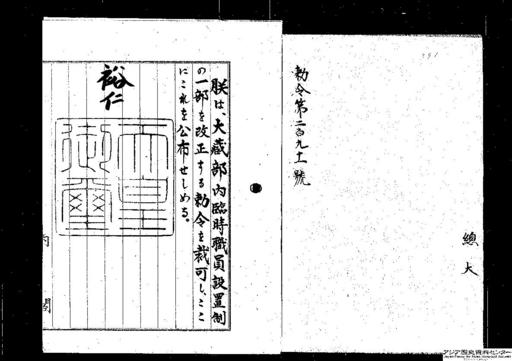 勅令第二百九十一號
總
大
朕は、大藏部内臨時職員設置制
の一部を改正する勅令を裁可し、ここ
にこれを公布せしめる。
裕仁
天皇御璽
内閣
アジア歴史資料センター